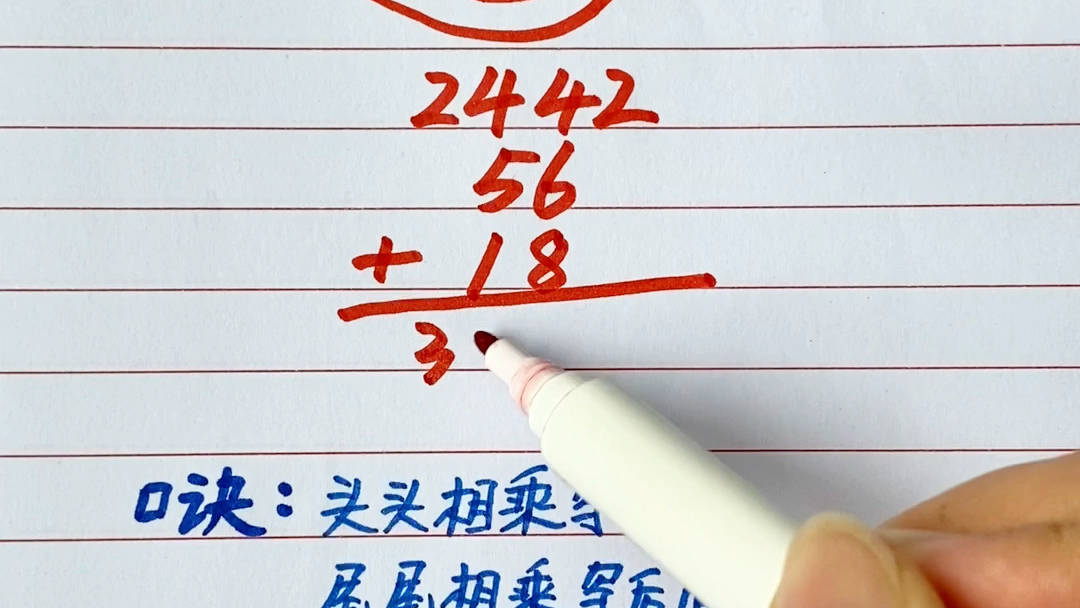 2442
56
+ 18
3
口诀：头头相乘
尾尾相乘写后